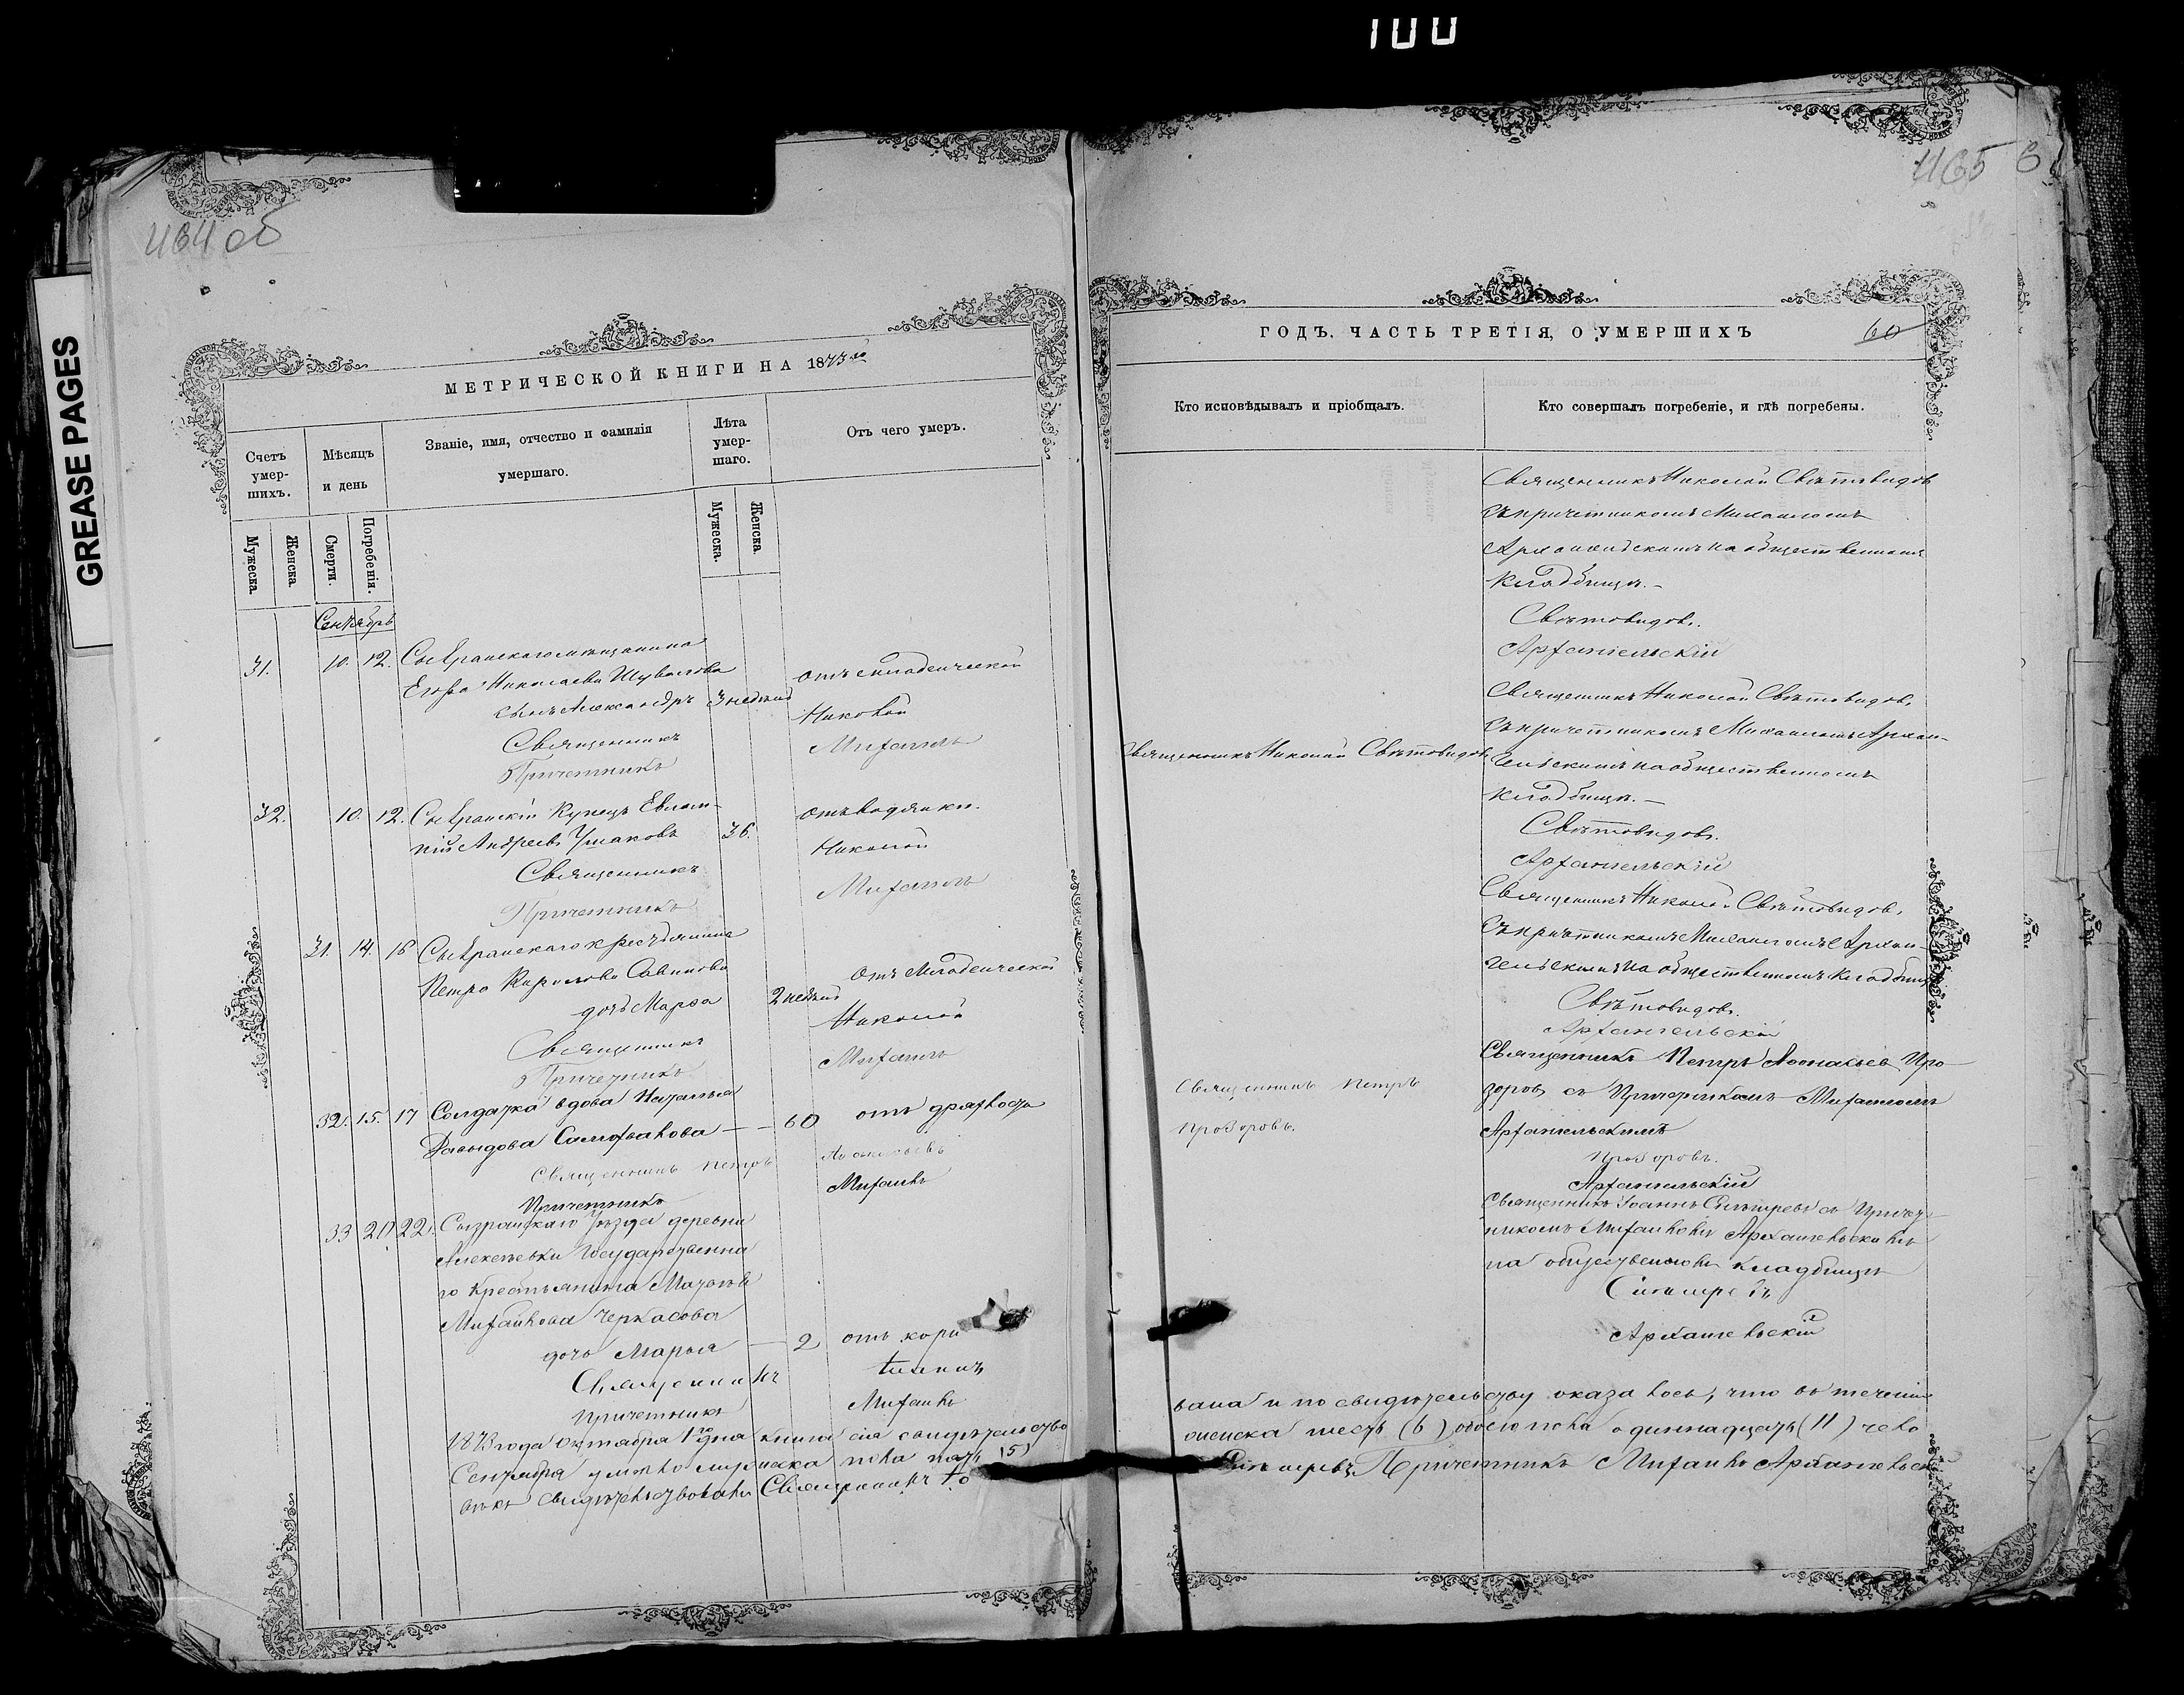 100
GREASE PAGES
464 об
МЕТРИЧЕСКОЙ КНИГИ НА 1873 го
Счетъ умер-шихъ.
Мѣсяцъ и день
Званіе, имя, отчество и фамилія
умершаго.
Лѣта умер-шаго.
Отъ чего умеръ.
Мужеска.
Женска.
Смерти.
Погребенія.
Мужеска.
Женска.
Сентябрь
31. 10. 12. Сызранскаго мѣщанина
Егора Николаева Шувалова
сынъ Александръ 3 недѣль отъ младенческой
Священникъ Николай
Причетникъ Михаилъ
32. 10. 12. Сызранскій Купецъ Евлам-
пій Андреевъ Ушаковъ 36. отъ водянки.
Священникъ Николай
Причетникъ Михаилъ
31. 14. 16 Сызранскаго крестьянина
Петра Кирилова Савинова
дочь Марѳа 2 недѣль отъ младенческой
Священникъ Николай
Причетникъ Михаилъ
32. 15. 17 Солдатка вдова Наталья
Давыдова — 60 отъ дряхлости
Священникъ Петръ
Причетникъ Михаилъ
33 20 22. Сызранскаго Уѣзда деревни
Государственна
го Крестьянина Матвѣя
Михайлова Черкасова
дочь Марья — 2 отъ кори
Священникъ
Причетникъ Михаилъ
1873 года Октября 1го дня книга сія свидѣтельство
Сентября умерло мужеска пола пять (5)
свидѣтельствовали Священникъ
465
6
ГОДЪ. ЧАСТЬ ТРЕТІЯ, О УМЕРШИХЪ
60
Кто исповѣдывалъ и пріобщалъ.
Кто совершалъ погребеніе, и гдѣ погребены.
Священникъ Николай Свѣтовидов
съ причетникомъ Михаиломъ
Архангельскимъ на общественномъ
кладбищѣ. —
Свѣтовидовъ.
Архангельскій
Священникъ Николай Свѣтовидовъ
Священникъ Николай Свѣтовидовъ,
съ причетникомъ Михаиломъ Архан-
гельскимъ на общественномъ
кладбищѣ. —
Свѣтовидовъ.
Архангельскій
Священникъ Николай Свѣтовидовъ,
съ причетникомъ Михаиломъ Архан-
гельскимъ на общественномъ кладбищѣ
Свѣтовидовъ.
Архангельскій
Священникъ Петръ
Прозоровъ.
Священникъ Петръ Аѳонасьев Про
зоровъ съ Причетникомъ Михаиломъ
Архангельскимъ
Прозоровъ.
Архангельскій
Священникъ Іоаннъ съ Причет
никомъ Михаиломъ Архангельскимъ
на общественномъ кладбищѣ
Архангельскій
вана и по свидѣтельству оказалось, что въ теченіи
женска шесть (6) обоего пола одиннадцать (11) чело
Причетникъ Михаилъ Архангельск